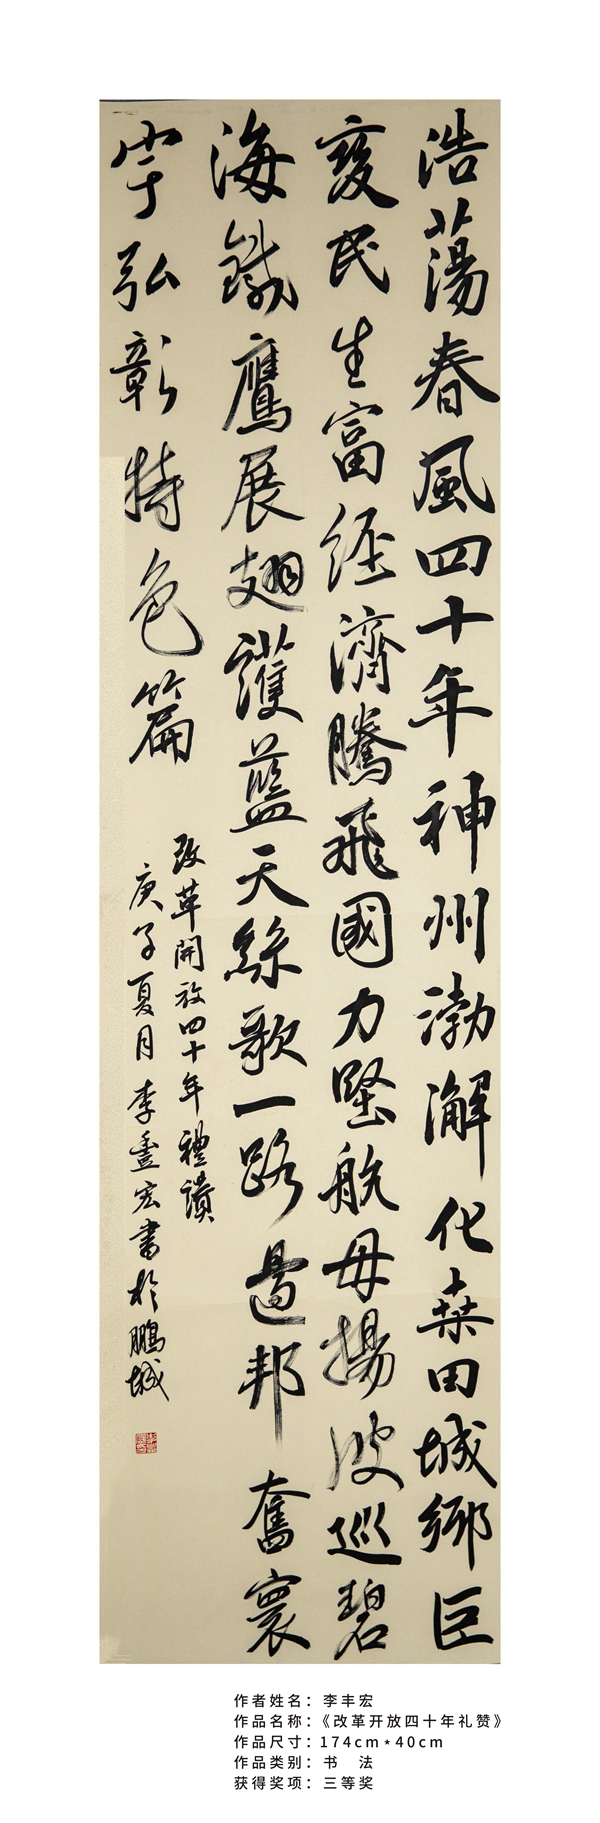 浩蕩春風四十年神州渤澥化桑田城鄉巨
變民生富經濟騰飛國力堅航母揚波巡碧
海鐵鷹展翅護藍天絲歌一路邑邦奮寰
宇弘彰特色篇
改革開放四十年禮讚
庚子夏月李豊宏書於鵬城
作者姓名：李丰宏
作品名称：《改革开放四十年礼赞》
作品尺寸：174cm*40cm
作品类别：书 法
获得奖项：三等奖